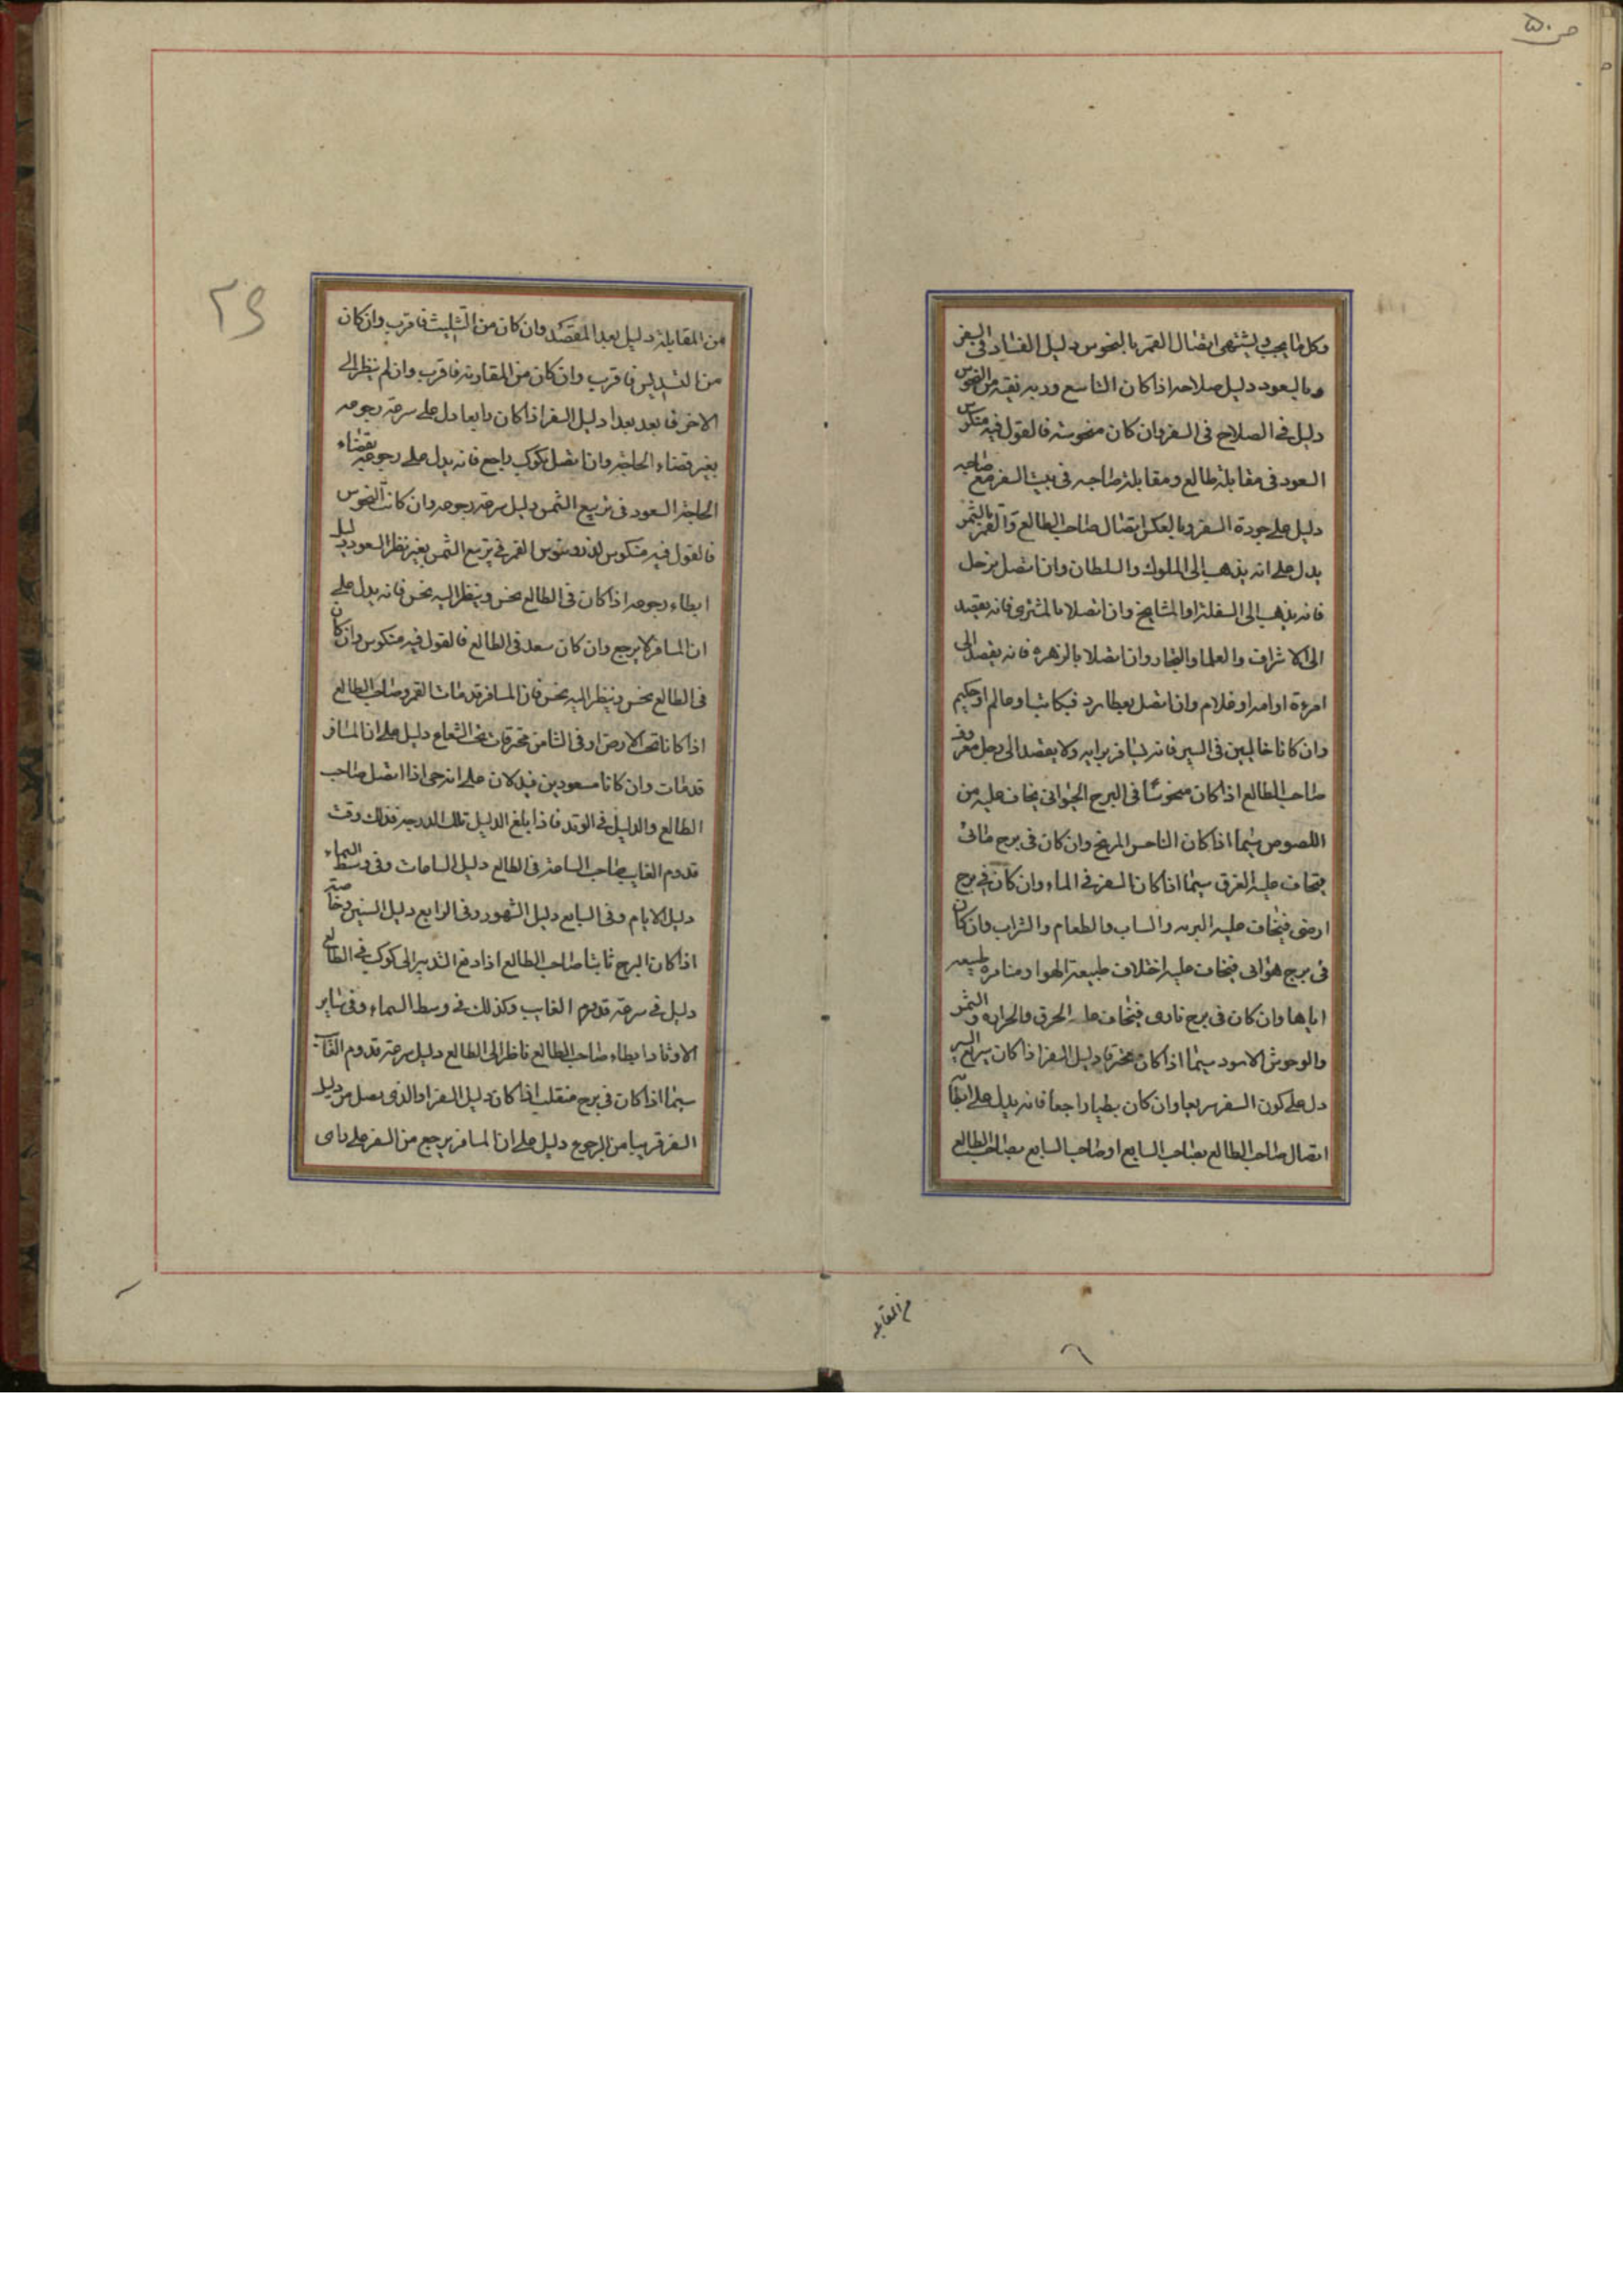 ص ۵۰
وكل ما يجب ويشتهى اتصال القمر بالنحوس دليل الفساد فى السفر
وبالسعود دليل صلاحه اذا كان التاسع وربه نقيه من النحوس
دليل فى الصلاح فى السفر وان كان منحوسه فالقول فيه منكوس
السعود فى مقابلة طالع ومقابلة صاحبه فى بيت السفر مع صاحبه
دليل على جودة السفر وبالعكس اتصال صاحب الطالع والقمر بالشمس
يدل على انه يذهب الى الملوك والسلطان وان اتصل بزحل
فانه يذهب الى السفلة او المشايخ وان اتصلا بالمشترى فانه يقصد
الى الاشراف والعلما والتجار وان اتصلا بالزهره فانه يقصد الى
امرءة او امه او غلام وان اتصل بعطارد فبكاتب او عالم او حكيم
وان كانا خاليين فى السير فانه يسافر برايه ولا يقصد الى رجل معروف
صاحب الطالع اذا كان منحوسًا فى البرج الجيوانى يخاف عليه من
اللصوص سيما اذا كان الناحس المريخ وان كان فى برج مائى
يخاف عليه الغرق سيما اذا كان السفر فى الماء وان كان فى برج
ارضى فيخاف عليه البريه والساب والطعام والشراب وان كان
فى برج هوائى فيخاف عليه اختلاف طبيعة الهوا ومنافرة طبيعه
اياها وان كان فى برج نارى فيخاف عليه الحرق والحرابه والشمس
والوحوش الاسود سيما اذا كان محترقا دليل السفر اذا كان سريع السير
دل على كون السفر سريعا وان كان بطيا راجعا فانه يدل على ابطا
اتصال صاحب الطالع بصاحب السابع او صاحب السابع بصاحب الطالع
من المقابله
۲۶
من المقابلة دليل بعد المقصد وان كان من التثليث فاقرب وان كان
من التسديس فاقرب وان كان من المقارنه فاقرب وان لم ينظر الى
الاخر فابعد بعدا دليل السفر اذا كان رابعا دل على سرعة رجوعه
بغير قضاء الحاجة وان اتصل بكوكب راجع فانه يدل على رجوعه بقضاء
الحاجة السعود فى تربيع الشمس دليل سرعة رجوعه وان كانت النحوس
فالقول فيه منكوس القمر فى تربيع الشمس بغير نظر السعود دليل
ابطاء رجوعه اذا كان فى الطالع نحس وينظر اليه نحس فانه يدل على
ان المسافر لا يرجع وان كان سعد فى الطالع فالقول فيه منكوس وان كان
فى الطالع نحس وينظر اليه نحس فان المسافر قد مات القمر وصاحب الطالع
اذا كانا تحت الارض او فى الثامن محترقان تحت الشعاع دليل على ان المسافر
قد مات وان كانا مسعودين فيدلان على انه حى اذا اتصل صاحب
الطالع والدليل فى الوتد فاذا بلغ الدليل تلك الدرجة فذلك وقت
قدوم الغايب صاحب الساعة فى الطالع دليل الساعات وفى وسط السماء
دليل الايام وفى السابع دليل الشهور وفى الرابع دليل السنين وخاصة
اذا كان البرج ثابتا صاحب الطالع اذا دفع التدبير الى كوكب فى الطالع
دليل فى سرعة قدوم الغايب وكذلك فى وسط السماء وفى ساير
الاوتاد ابطاء صاحب الطالع ناظر الى الطالع دليل سرعة قدوم الغايب
سيما اذا كان فى برج منقلب اذا كان دليل السفر او الذى يصل من دليل
السفر قريبا من الرجوع دليل على ان المسافر يرجع من السفر على راى